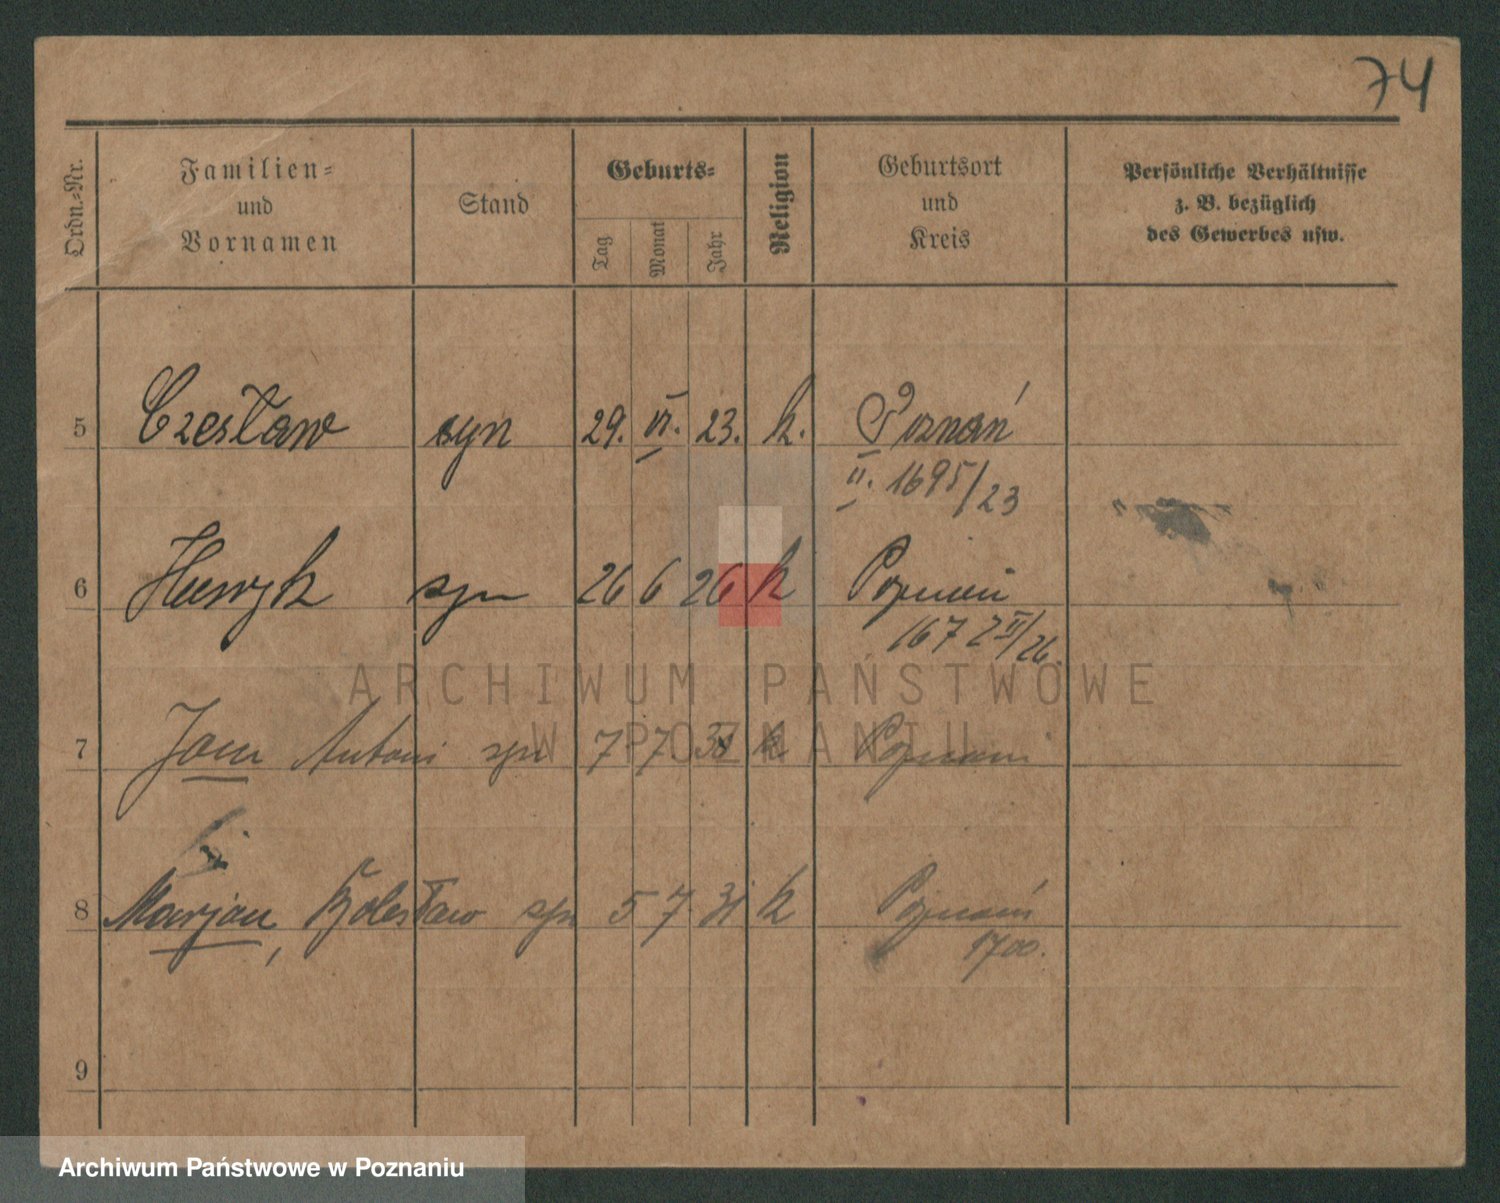 74
Ordn.-Nr. Familien- und Vornamen Stand Geburts- Tag Monat Jahr Religion Geburtsort und Kreis Persönliche Verhältnisse z. B. bezüglich des Gewerbes usw.
5 Czesław syn 29. VI. 23. k. Poznań
II. 1695/23
6 Henryk syn 26 6 26 k Poznań
1672 II/26
ARCHIWUM PAŃSTWOWE
W POZNANIU
7 Jan Antoni syn 7 7 k Poznań
8 Marjan, Bolesław syn 5 7 31 k Poznań
1700.
9
Archiwum Państwowe w Poznaniu